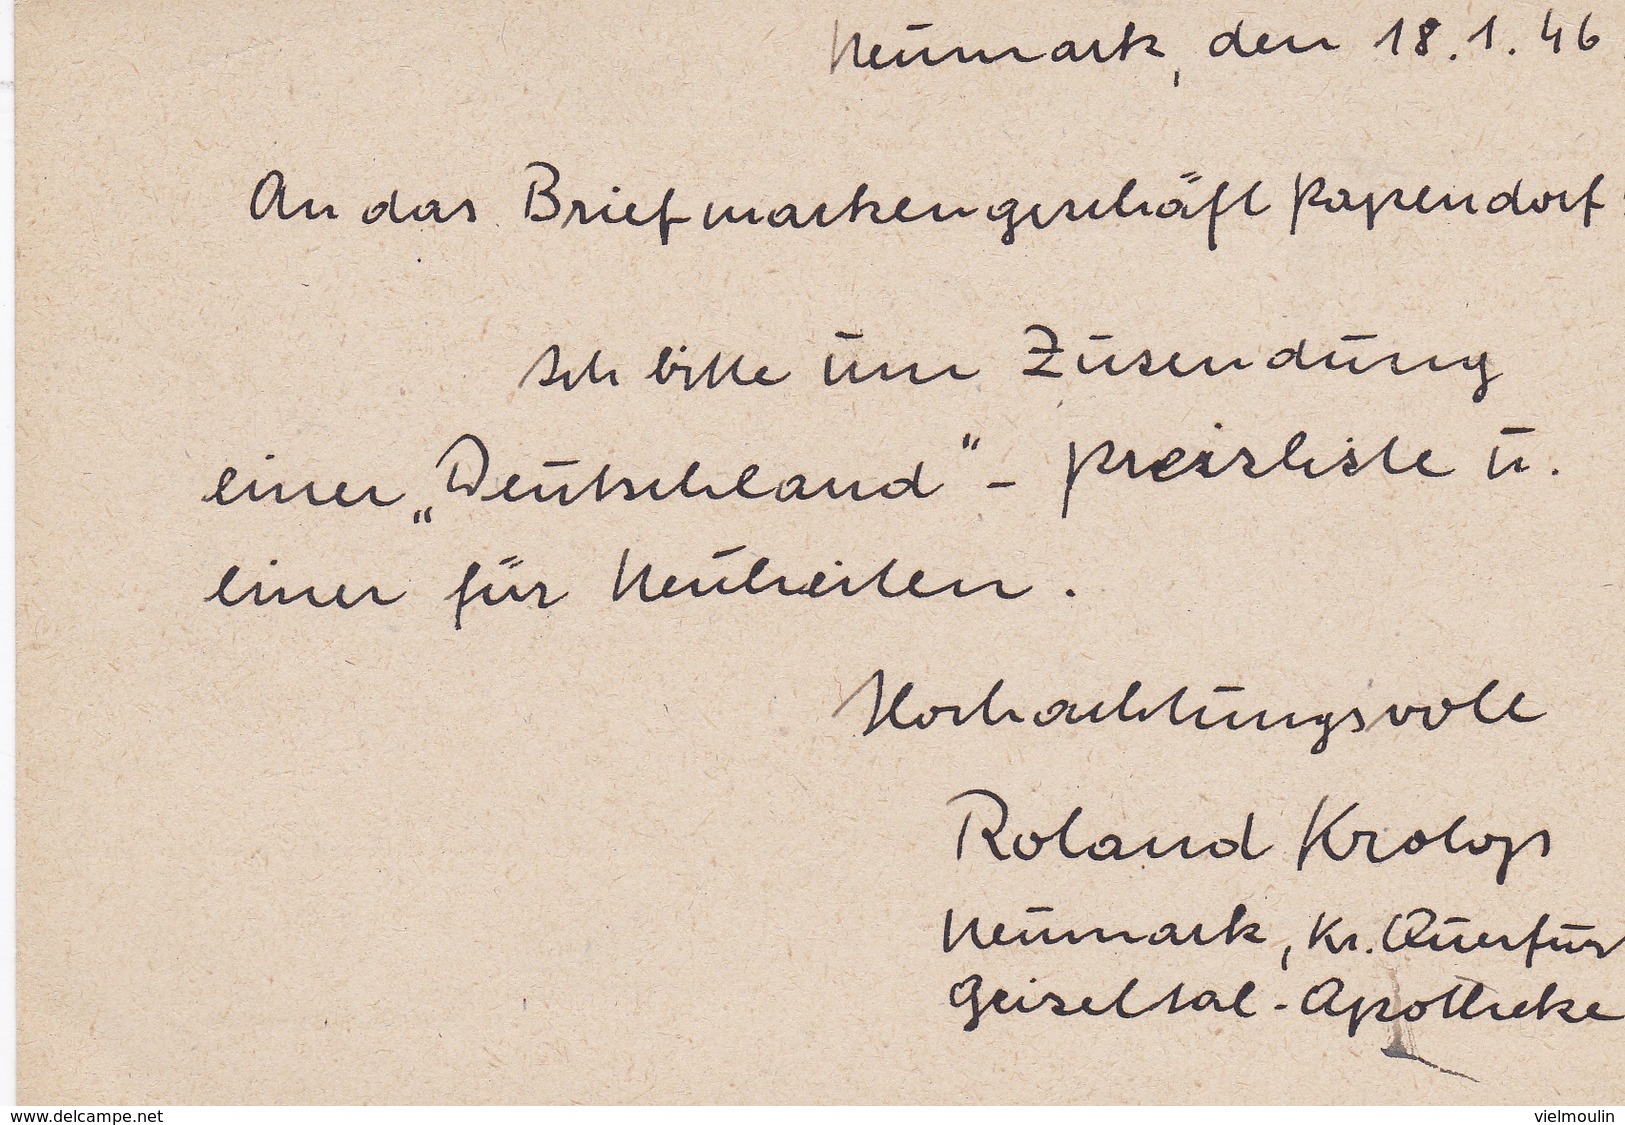 Neumark, den 18.1.46
An das Briefmarkengeschäft Papendorf
Ich bitte um Zusendung
einer „Deutschland"- Preisliste u.
einer für Neuheiten.
Hochachtungsvoll
Roland Krolop
Neumark, Kr. Querfur
Geiseltal-Apotheke
www.delcampe.net
vielmoulin